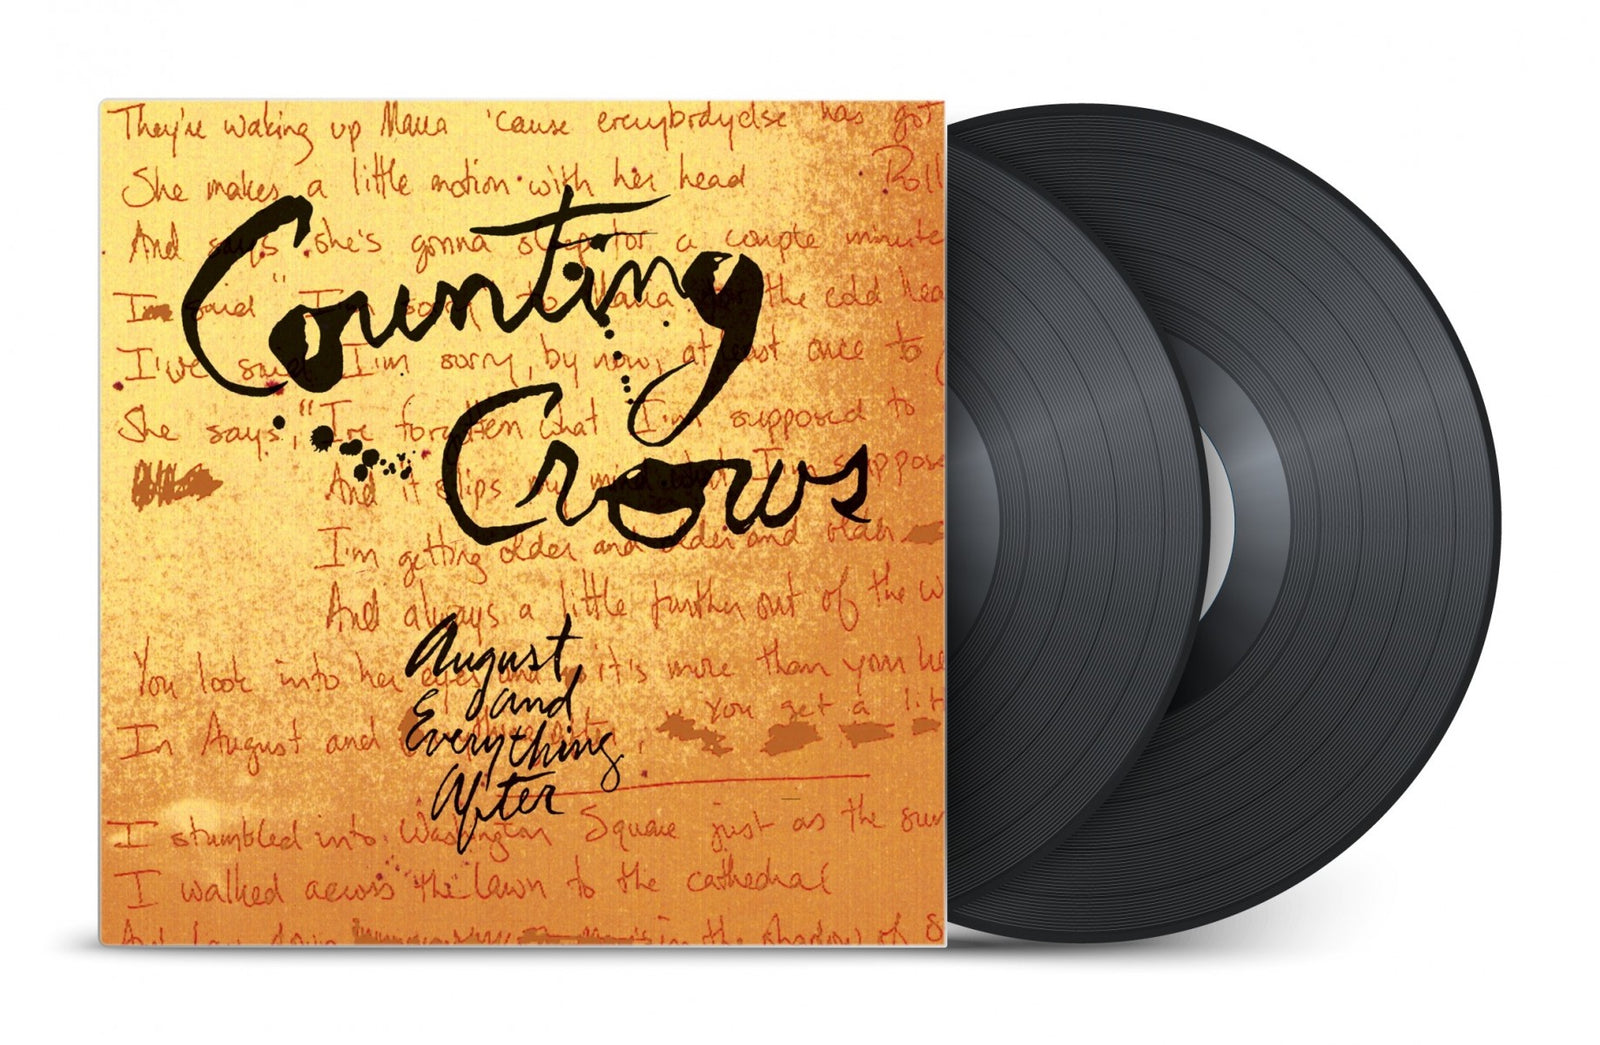 They're waking up Maria 'cause everybodyelse has got
She makes a little motion with her head
Roll
And says she's gonna sleep for a couple minute
I said "I'm sorry to Maria for the cold hea
I've said I'm sorry, by now, at least once to
She says, "I've forgotten what I'm supposed to
And it slips my mind what I'm suppose
I'm getting older and older and older
And always a little further out of the w
You look into her eyes and it's more than your he
In August and
You get a lit
I stumbled into Washington Square just as the sun
I walked across the lawn to the cathedral
in the shadow of S
Counting
Crows
August
and
Everything
After